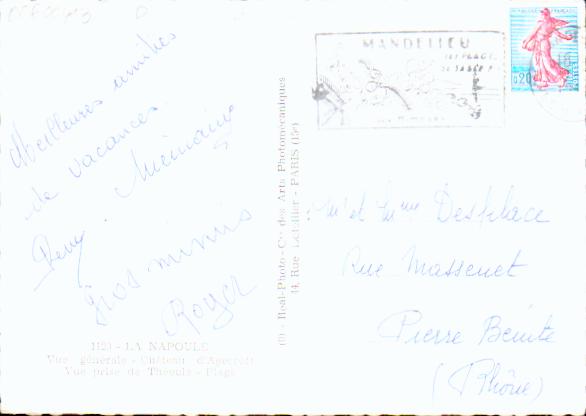 Meilleures amitiés
de vacances.
Remy
Gros mimis
Roger
1123 - LA NAPOULE
Vue générale - Château d'Agecroft
Vue prise de Théoule - Plage
(6) - Real-Photo - Cie des Arts Photomécaniques
44, Rue Letellier - PARIS (15e)
MANDELIEU
SA PLAGE
DE SABLE
REPUBLIQUE FRANÇAISE
0,20
Mr et Mme Desplace
Rue Massenet
Pierre Bénite
(Rhône)